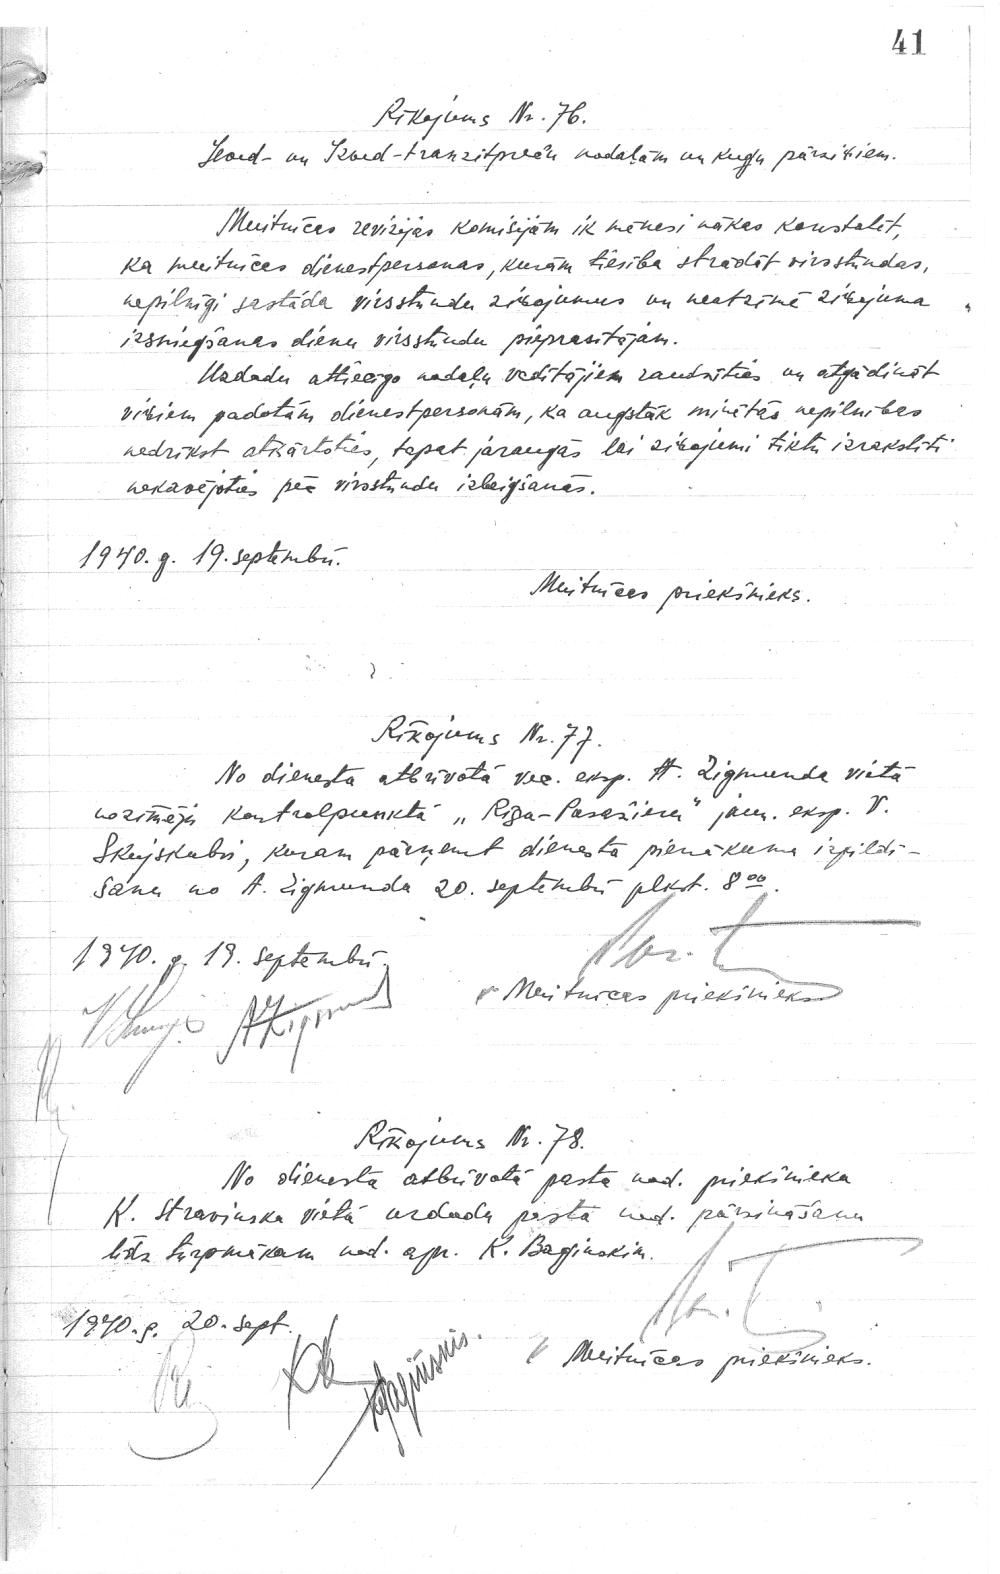 41
Rīkojums Nr. 76.
Ieved- un Izved-tranzitpreču nodaļām un kuģu pārziņiem.
Muitnīcas revizijas komisijām ik mēnesi nākas konstatēt,
ka muitnīcas dienestpersonas, kurām tiesība strādāt virsstundas,
nepilnīgi sastāda virsstundu ziņojumus un neatzīmē ziņojuma
izsniegšanas dienu virsstundu pieprasītājam.
Uzdodu attiecīgo nodaļu vadītājiem raudzīties un atgādināt
visiem padotām dienestpersonām, ka augstāk minētās nepilnības
nedrīkst atkārtoties, tapat jaraugās lai ziņojumi tiktu izrakstīti
nekavējoties pēc virsstundu izbeigšanas.
1940. g. 19. septembrī.
Muitnīcas priekšnieks.
Rīkojums Nr. 77.
No dienesta atbrīvotā vec. eksp. A. Zigmunda vietā
nozīmēju kontrolpunktā „Rīga-Pasažieru" jaun. eksp. V.
Skujskubri, kuram pārņemt dienesta pienākuma izpildī-
šanu no A. Zigmunda 20. septembrī plkst. 8 00.
1940. g. 19. septembrī.
Muitnīcas priekšnieks
A Zigmund
Rīkojums Nr. 78.
No dienesta atbrīvotā pasta nod. priekšnieka
K. Stravinska vietā uzdodu pasta nod. pārzināšanu
līdz turpmākam nod. apr. K. Baginskim.
1940. g. 20. sept.
Muitnīcas priekšnieks.